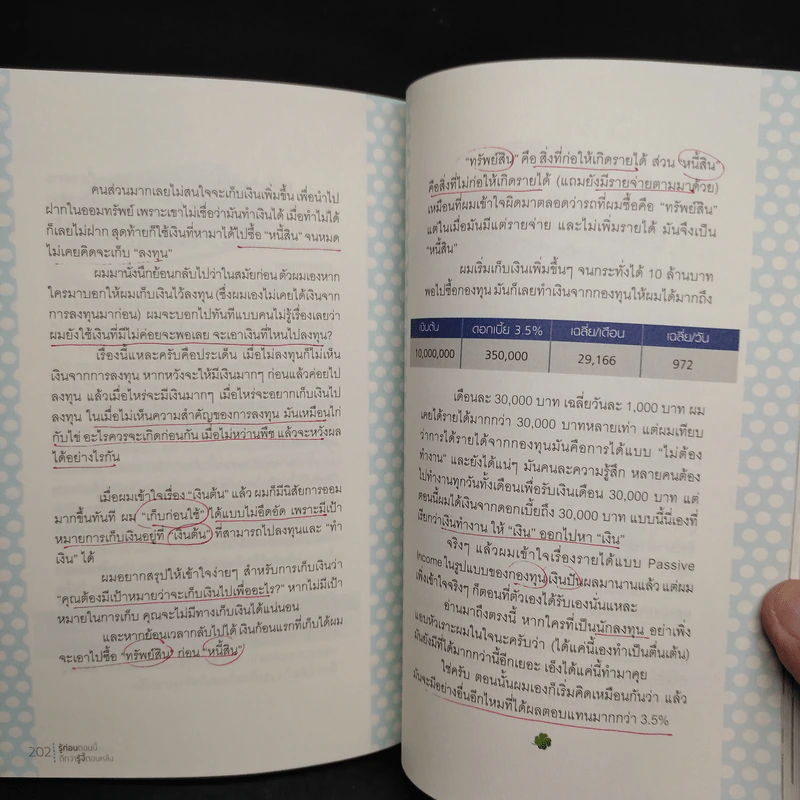 คนส่วนมากเลยไม่สนใจจะเก็บเงินเพิ่มขึ้น เพื่อนำไป
ฝากในออมทรัพย์ เพราะเขาไม่เชื่อว่ามันทำเงินได้ เมื่อทำไม่ได้
ก็เลยไม่ฝาก สุดท้ายก็ใช้เงินที่หามาได้ไปซื้อ "หนี้สิน" จนหมด
ไม่เคยคิดจะเก็บ "ลงทุน"
ผมมานั่งนึกย้อนกลับไปว่าในสมัยก่อน ตัวผมเองหาก
ใครมาบอกให้ผมเก็บเงินไว้ลงทุน (ซึ่งผมเองไม่เคยได้เงินจาก
การลงทุนมาก่อน) ผมจะบอกไปทันทีแบบคนไม่รู้เรื่องเลยว่า
ผมยังใช้เงินที่มีไม่ค่อยจะพอเลย จะเอาเงินที่ไหนไปลงทุน?
เรื่องนี้แหละครับคือประเด็น เมื่อไม่ลงทุนก็ไม่เห็น
เงินจากการลงทุน หากหวังจะให้มีเงินมากๆ ก่อนแล้วค่อยไป
ลงทุน แล้วเมื่อไหร่จะมีเงินมากๆ เมื่อไหร่จะอยากเก็บเงินไป
ลงทุน ในเมื่อไม่เห็นความสำคัญของการลงทุน มันเหมือนไก่
กับไข่ อะไรควรจะเกิดก่อนกัน เมื่อไม่หว่านพืช แล้วจะหวังผล
ได้อย่างไรกัน
เมื่อผมเข้าใจเรื่อง "เงินต้น" แล้ว ผมก็มีนิสัยการออม
มากขึ้นทันที ผม "เก็บก่อนใช้" ได้แบบไม่อึดอัด เพราะมีเป้า
หมายการเก็บเงินอยู่ที่ "เงินต้น" ที่สามารถไปลงทุนและ "ทำ
เงิน" ได้
ผมอยากสรุปให้เข้าใจง่ายๆ สำหรับการเก็บเงินว่า
"คุณต้องมีเป้าหมายว่าจะเก็บเงินไปเพื่ออะไร?" หากไม่มีเป้า
หมายในการเก็บ คุณจะไม่มีทางเก็บเงินได้แน่นอน
และหากย้อนเวลากลับไปได้ เงินก้อนแรกที่เก็บได้ผม
จะเอาไปซื้อ "ทรัพย์สิน" ก่อน "หนี้สิน"
202 รู้ก่อนตอนนี้
ดีกว่ารู้งี้ตอนหลัง
"ทรัพย์สิน" คือ สิ่งที่ก่อให้เกิดรายได้ ส่วน "หนี้สิน"
คือสิ่งที่ไม่ก่อให้เกิดรายได้ (แถมยังมีรายจ่ายตามมาด้วย)
เหมือนที่ผมเข้าใจผิดมาตลอดว่ารถที่ผมซื้อคือ "ทรัพย์สิน"
แต่ในเมื่อมันมีแต่รายจ่าย และไม่เพิ่มรายได้ มันจึงเป็น
"หนี้สิน"
ผมเริ่มเก็บเงินเพิ่มขึ้นๆ จนกระทั่งได้ 10 ล้านบาท
พอไปซื้อกองทุน มันก็เลยทำเงินจากกองทุนให้ผมได้มากถึง
เงินต้น ดอกเบี้ย 3.5% เฉลี่ย/เดือน เฉลี่ย/วัน
10,000,000 350,000 29,166 972
เดือนละ 30,000 บาท เฉลี่ยวันละ 1,000 บาท ผม
เคยได้รายได้มากกว่า 30,000 บาทหลายเท่า แต่ผมเทียบ
ว่าการได้รายได้จากกองทุนมันคือการได้แบบ "ไม่ต้อง
ทำงาน" และยังได้แน่ๆ มันคนละความรู้สึก หลายคนต้อง
ไปทำงานทุกวันทั้งเดือนเพื่อรับเงินเดือน 30,000 บาท แต่
ตอนนี้ผมได้เงินจากดอกเบี้ยถึง 30,000 บาท แบบนี้นี่เองที่
เรียกว่าเงินทำงาน ให้ "เงิน" ออกไปหา "เงิน"
จริงๆ แล้วผมเข้าใจเรื่องรายได้แบบ Passive
Income ในรูปแบบของกองทุนเงินปันผลมานานแล้ว แต่ผม
เพิ่งเข้าใจจริงๆ ก็ตอนที่ตัวเองได้รับเองนั่นแหละ
อ่านมาถึงตรงนี้ หากใครที่เป็นนักลงทุน อย่าเพิ่ง
แอบหัวเราะผมในใจนะครับว่า (ได้แค่นี้เองทำเป็นตื่นเต้น)
มันยังมีที่ได้มากกว่านี้อีกเยอะ เอ็งได้แค่นี้ทำมาคุย
ใช่ครับ ตอนนั้นผมเองก็เริ่มคิดเหมือนกันว่า แล้ว
มันจะมีอย่างอื่นอีกไหมที่ได้ผลตอบแทนมากกว่า 3.5%